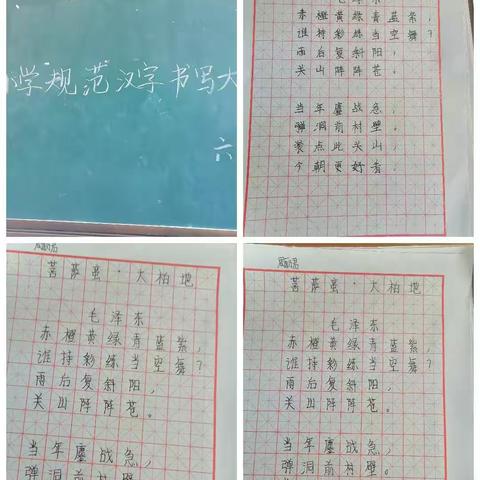 小学规范汉字书写大
六
毛泽东
赤橙黄绿青蓝紫，
谁持彩练当空舞？
雨后复斜阳，
关山阵阵苍。
当年鏖战急，
弹洞前村壁。
装点此关山，
今朝更好看。
菩萨蛮·大柏地
毛泽东
赤橙黄绿青蓝紫，
谁持彩练当空舞？
雨后复斜阳，
关山阵阵苍。
当年鏖战急，
弹洞前村壁
菩萨蛮·大柏地
毛泽东
赤橙黄绿青蓝紫，
谁持彩练当空舞？
雨后复斜阳，
关山阵阵苍。
当年鏖战急，
弹洞前村壁。